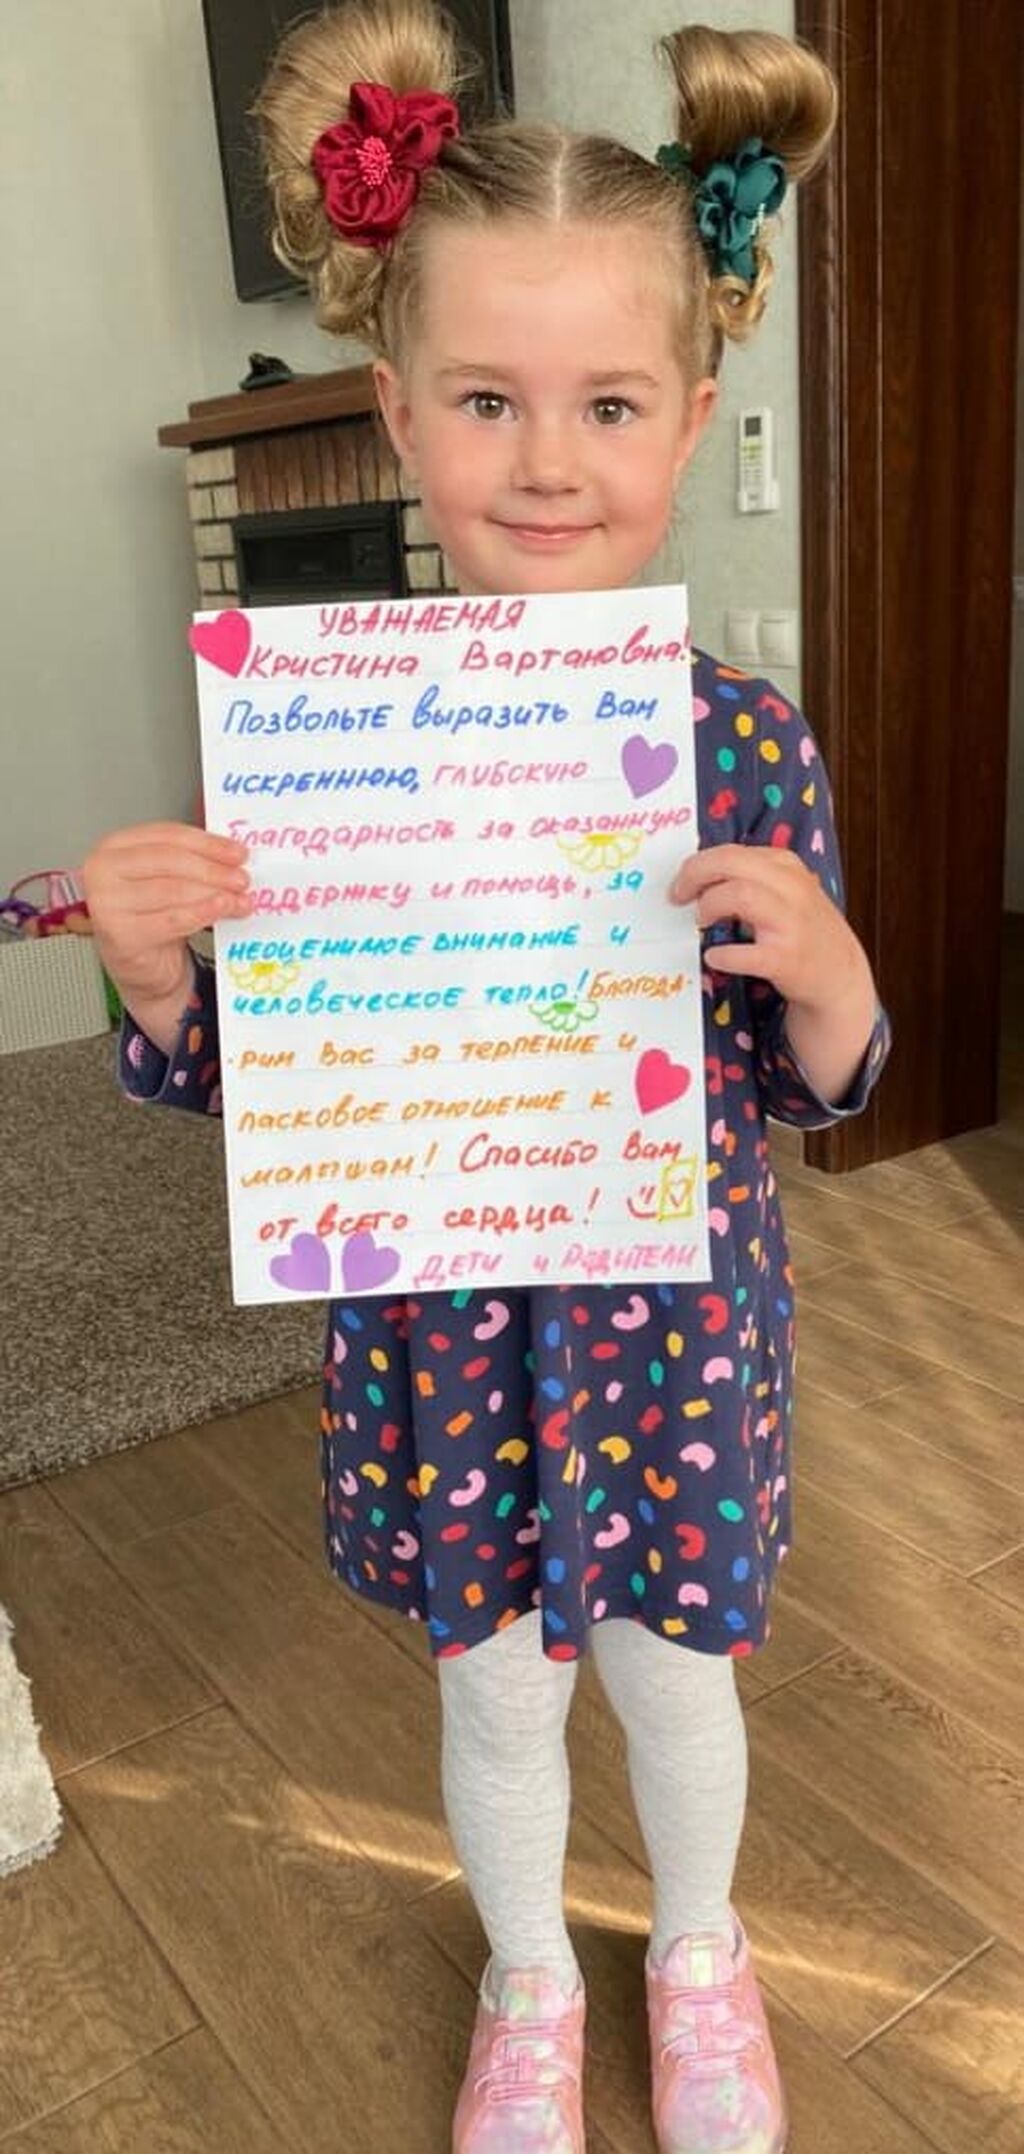 УВАЖАЕМАЯ
Кристина Вартановна!
Позвольте выразить Вам
искреннюю, глубокую
благодарность за оказанную
поддержку и помощь, за
неоценимое внимание и
человеческое тепло! Благода-
-рим Вас за терпение и
ласковое отношение к
малышам! Спасибо Вам
от всего сердца!
Дети и Родители